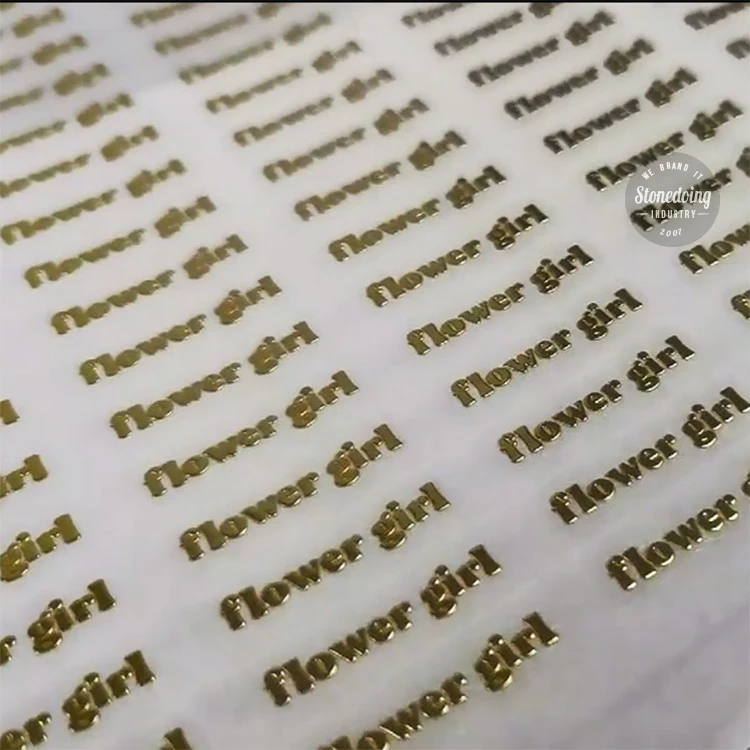 flower girl
flower girl
flower girl
flower girl
flower girl
flower girl
flower girl
flower girl
flower girl
flower girl
flower girl
flower girl
flower girl
flower girl
flower girl
flower girl
flower girl
flower girl
flower girl
flower girl
flower girl
flower girl
flower girl
flower girl
flower girl
flower girl
flower girl
flower girl
flower girl
flower
girl
girl
er girl
WE BRAND IT
Stonedoing
INDUSTRY
2007